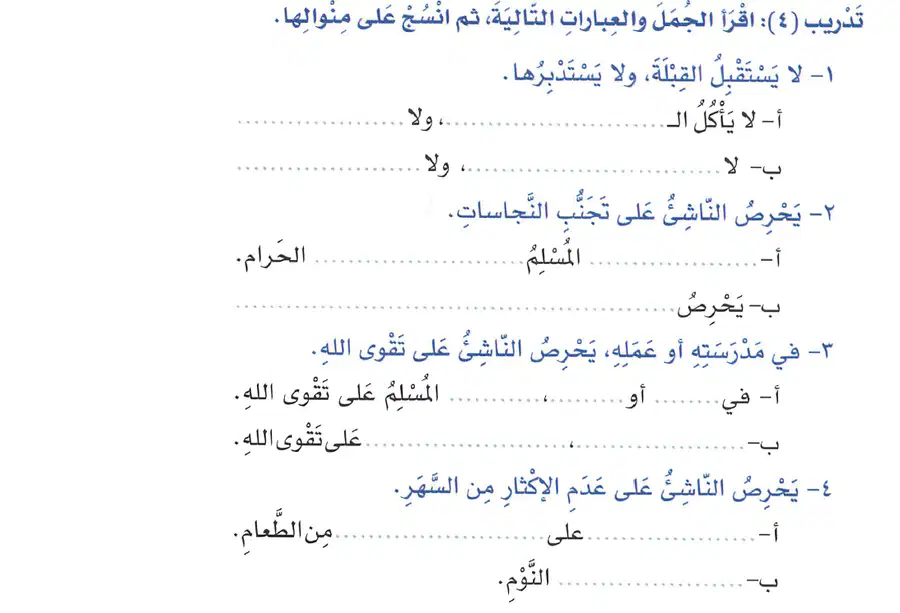 تَدْريب (٤): اقْرَأ الجُمَلَ والعِباراتِ التّالِيَةَ، ثم انْسُجْ عَلى مِنْوالِها.
١- لا يَسْتَقْبِلُ القِبْلَةَ، ولا يَسْتَدْبِرُها.
أ- لا يَأْكُلُ الـ.............................، ولا .....................
ب- لا .................................، ولا .......................
٢- يَحْرِصُ النّاشِئُ عَلى تَجَنُّبِ النَّجاساتِ.
أ-...................... المُسْلِمُ .......................... الحَرام.
ب- يَحْرِصُ .........................................................
٣- في مَدْرَسَتِهِ أو عَمَلِهِ، يَحْرِصُ النّاشِئُ عَلى تَقْوى اللهِ.
أ- في......... أو .........، ............ المُسْلِمُ عَلى تَقْوى اللهِ.
ب-.......................، ........................... عَلى تَقْوى اللهِ.
٤- يَحْرِصُ النّاشِئُ عَلى عَدَمِ الإكْثارِ مِن السَّهَرِ.
أ-...................... على ............................... مِن الطَّعامِ.
ب-........................ النَّوْمِ.